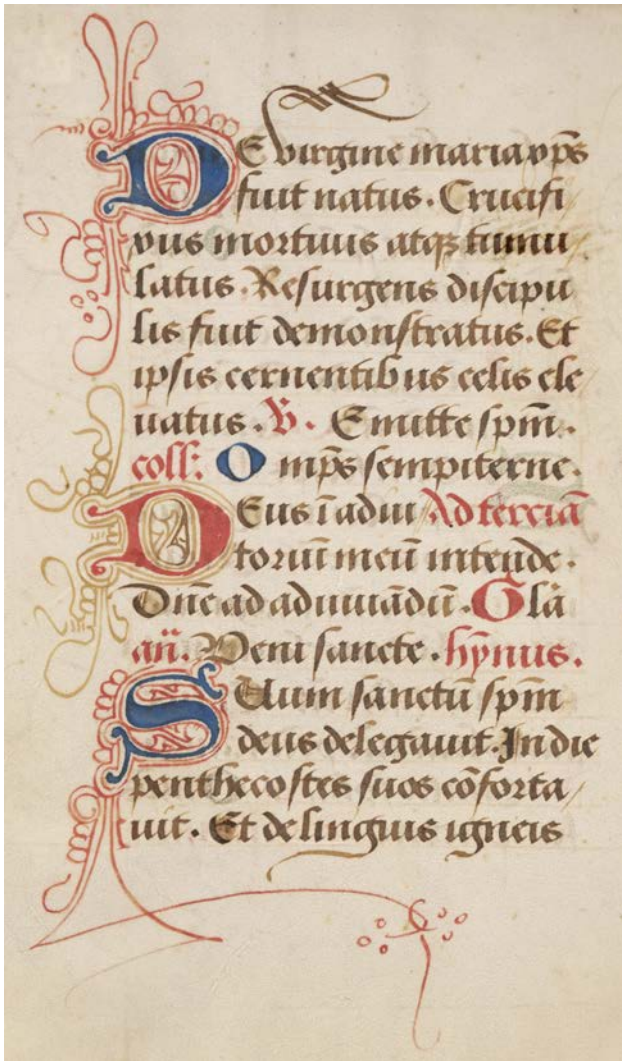 DE virgine maria xp̄s
fuit natus. Crucifi
xus mortuus atqꝫ tumu
latus. Resurgens discipu
lis fuit demonstratus. Et
ipsis cernentibus celis ele
uatus. ℣. Emitte sp̄m.
coll: Omp̄s sempiterne.
DEus ī adiu Ad terciā
toriū meū intende.
Dn̄e ad adiuuādū. Glā
an̄. Veni sancte. hȳnus.
SUum sanctū sp̄m
deus delegauit. In die
penthecostes suos cōforta
uit. Et de linguis igneis